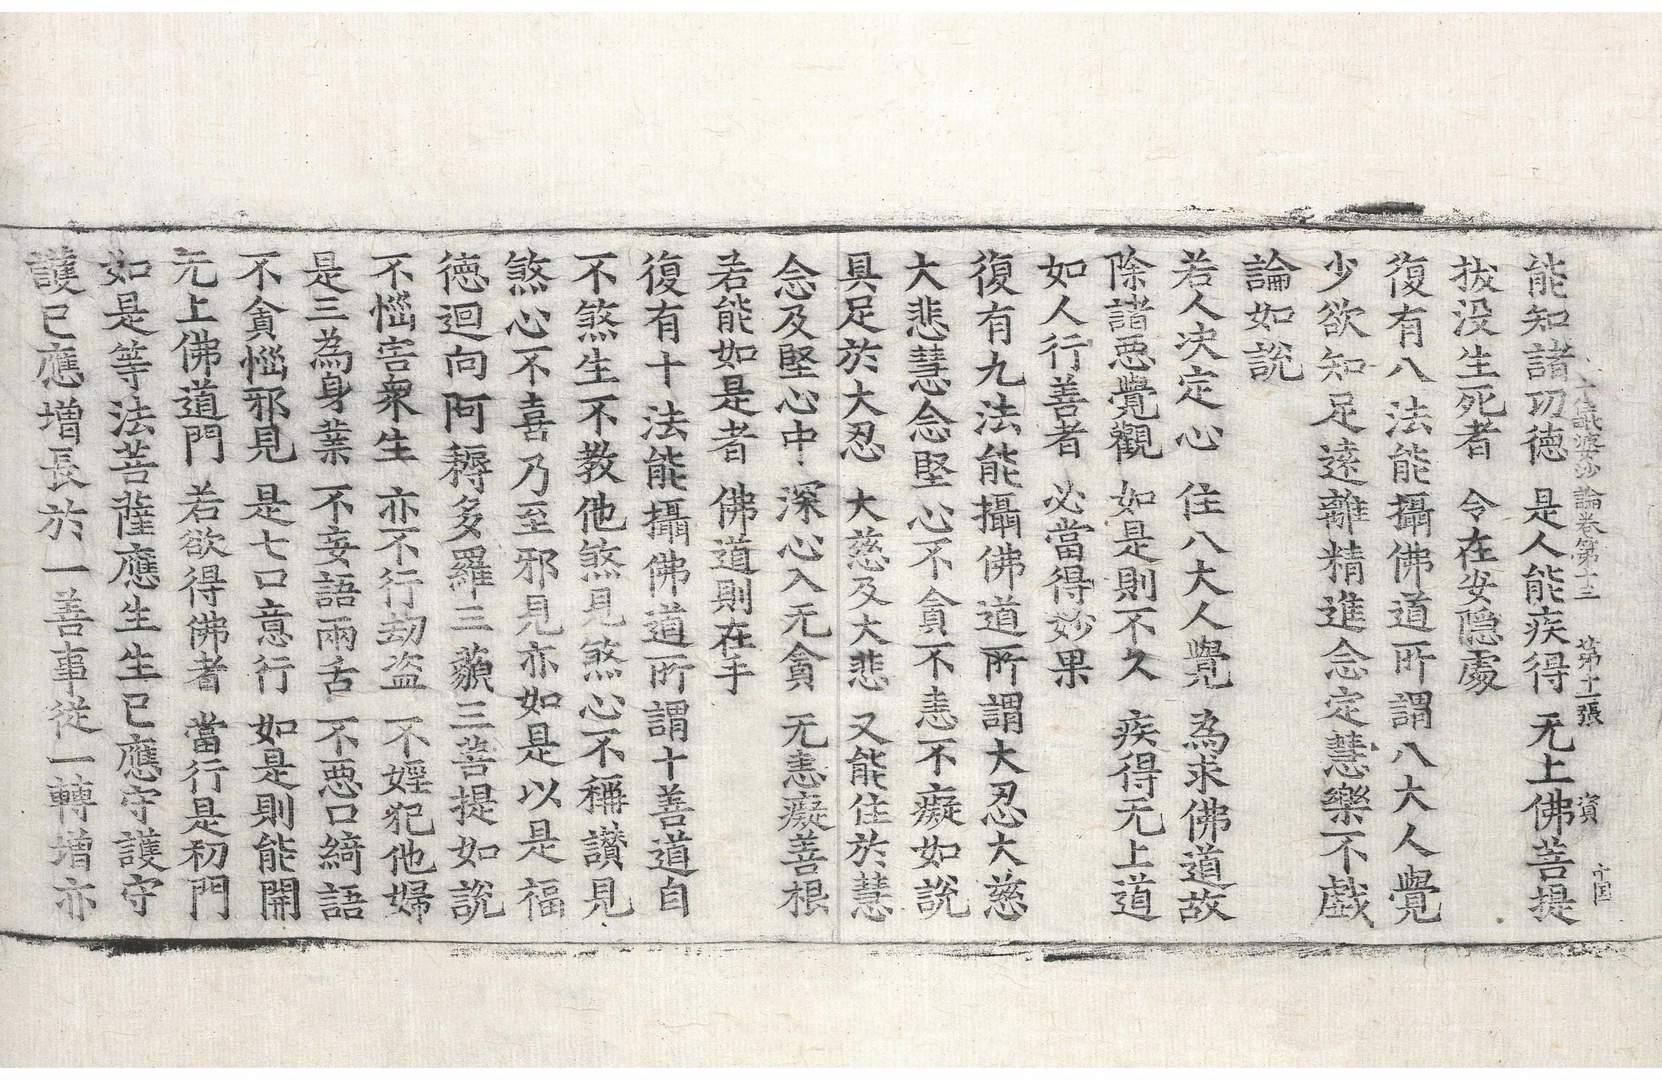 毗婆沙論卷第十三 第十二張 資
能知諸功德 是人能疾得 无上佛菩提
拔没生死者 令在安隱處
復有八法能攝佛道所謂八大人覺
少欲知足遠離精進念定慧樂不戲
論如說
若人决定心 住八大人覺 為求佛道故
除諸惡覺觀 如是則不久 疾得无上道
如人行善者 必當得妙果
復有九法能攝佛道所謂大忍大慈
大悲慧念堅心不貪不恚不癡如說
具足於大忍 大慈及大悲 又能住於慧
念及堅心中 深心入无貪 无恚癡善根
若能如是者 佛道則在手
復有十法能攝佛道所謂十善道自
不煞生不教他煞見煞心不稱讃見
煞心不喜乃至邪見亦如是以是福
德迴向阿耨多羅三藐三菩提如說
不惱害衆生 亦不行劫盗 不婬犯他婦
是三為身業 不妄語兩舌 不惡口綺語
不貪惱邪見 是七口意行 如是則能開
无上佛道門 若欲得佛者 當行是初門
如是等法菩薩應生生已應守護守
護已應增長於一善事從一轉增亦